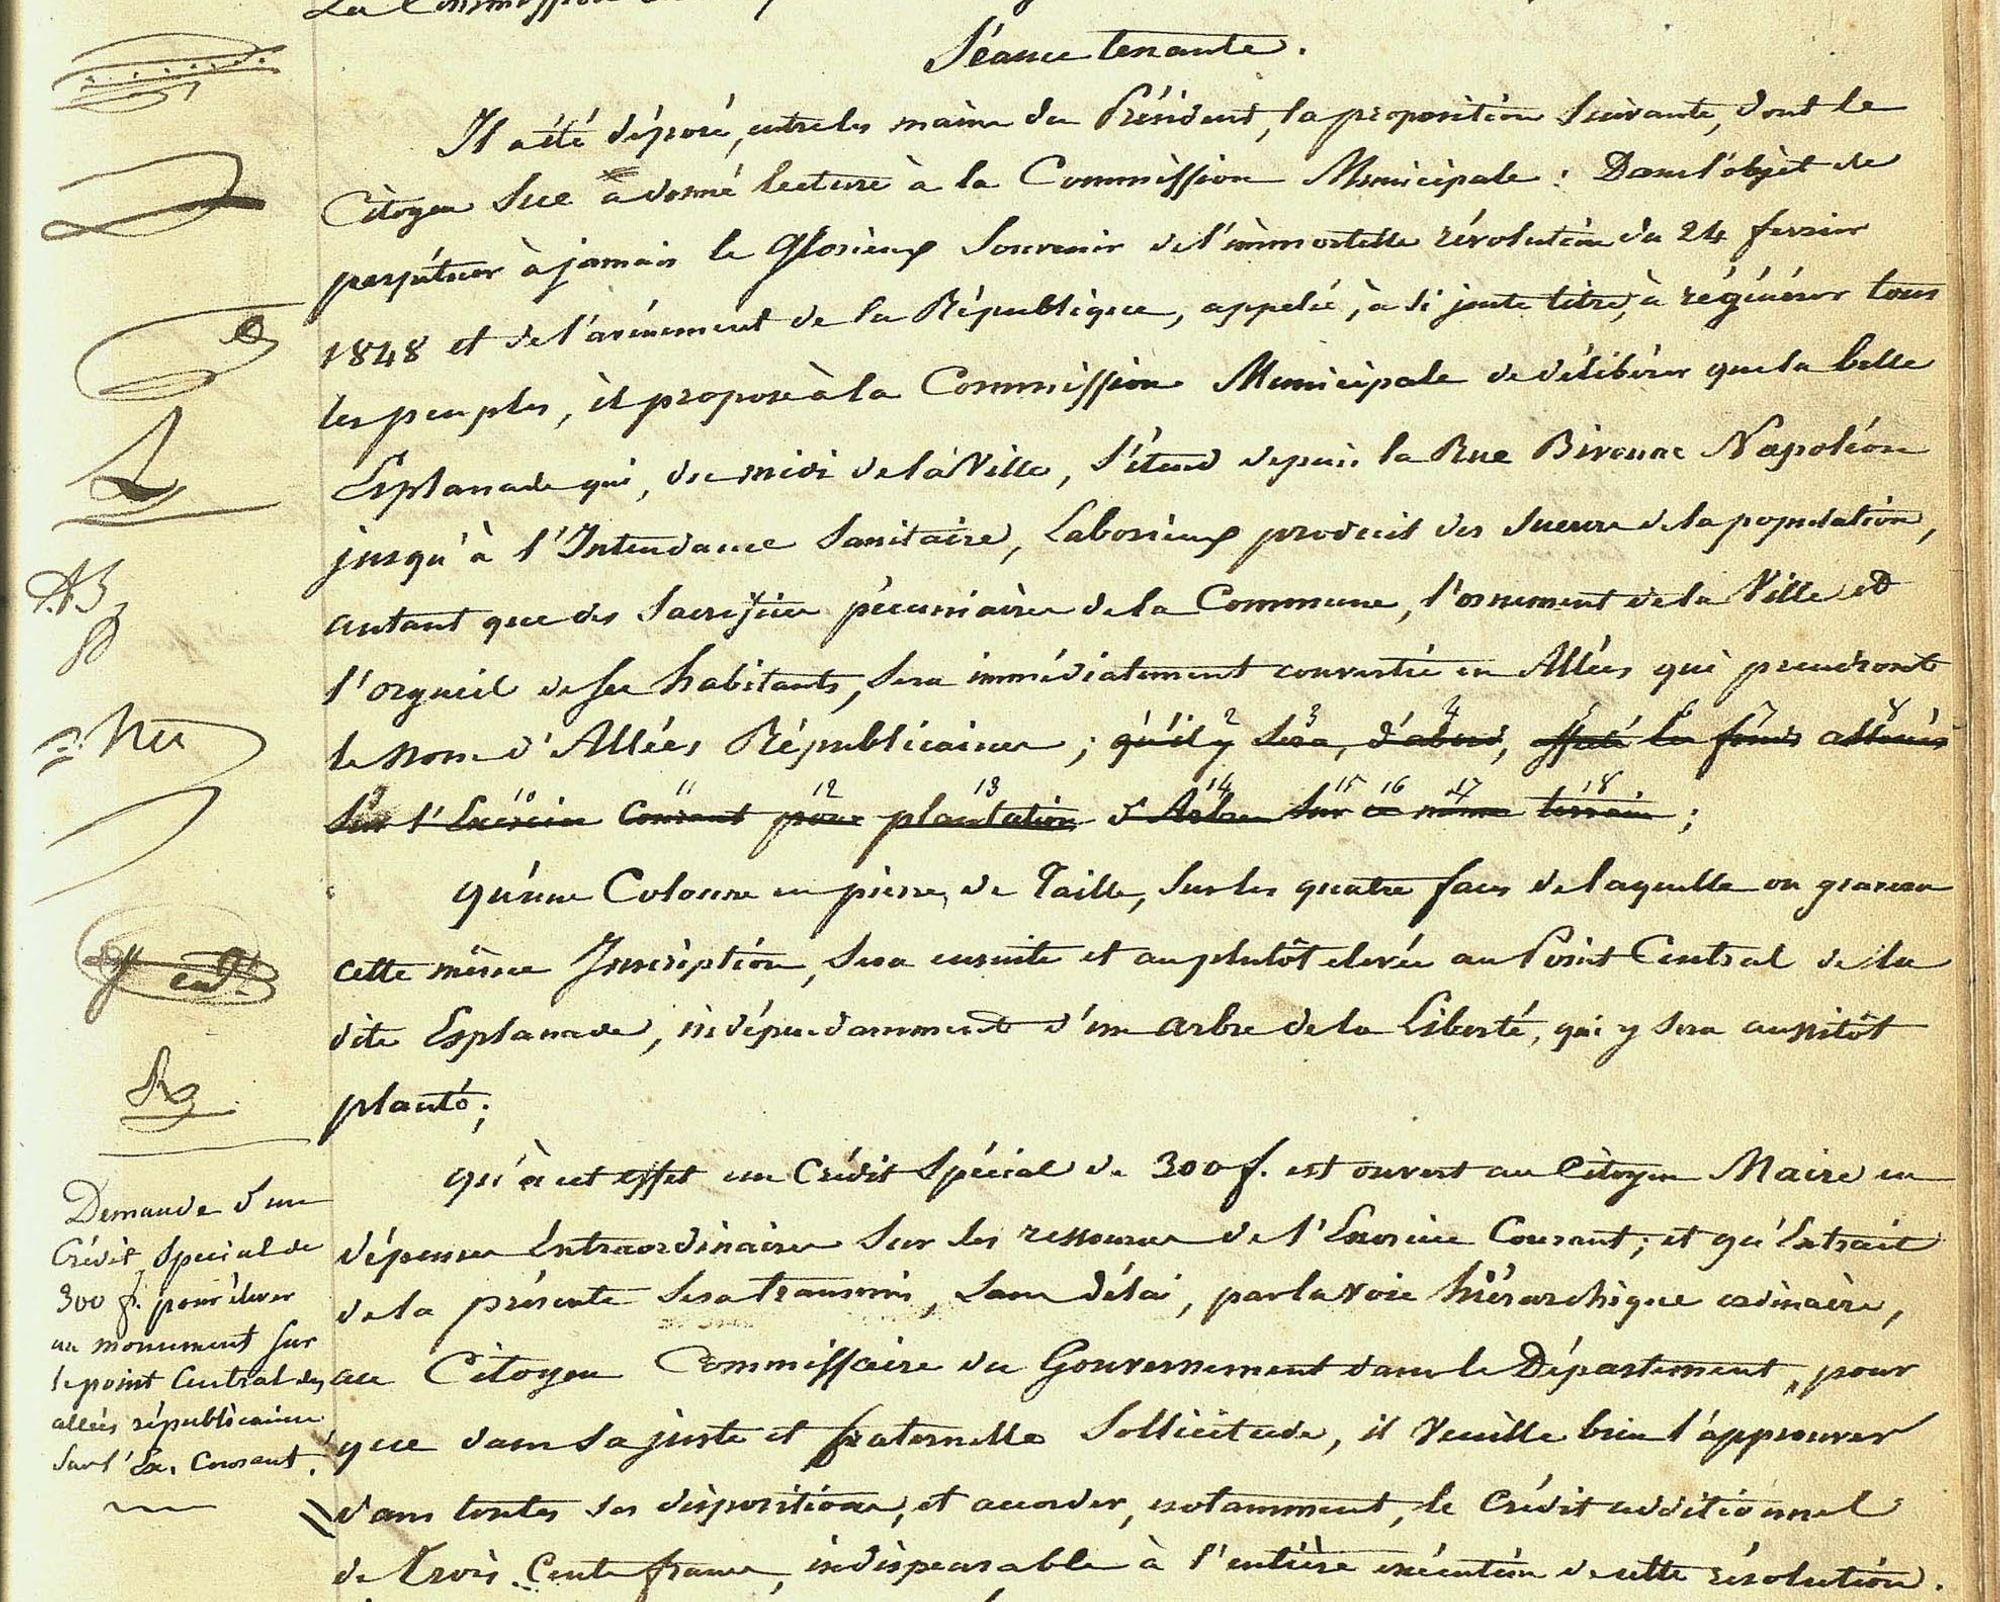 La Commission
Séance tenante.
Il a été déposé, entre les mains du Président, la proposition suivante, dont le
Citoyen Suc a donné lecture à la Commission Municipale : Dans l'objet de
perpétuer à jamais le Glorieux Souvenir de l'immortelle révolution du 24 fevrier
1848 et de l'avénement de la République, appelée, à si juste titre, à régénérer tous
les peuples, il propose à la Commission Municipale de délibérer que la belle
Esplanade qui, du midi de la Ville, s'étend depuis la Rue Bivouac Napoléon
jusqu'à l'Intendance Sanitaire, Laborieux produit des sueurs de la population,
autant que des Sacrifices pécuniaires de la Commune, l'ornement de la Ville et
l'orgueil de ses habitants, sera immédiatement convertie en Allées qui prendront
le nom d'Allées Républicaines ; qu'il y sera, d'abord, affecté les fonds alloués
2 3 4 5 6 7 8
Sur l'Exercice Courant pour plantation d'Arbres sur ce même terrain ;
9 10 11 12 13 14 15 16 17 18
qu'une Colonne en pierre de Taille, sur les quatre faces de laquelle on gravera
cette même Inscription, sera ensuite et au plutôt elevée au Point Central de la
dite Esplanade, indépendamment d'un arbre de la Liberté, qui y sera aussitôt
planté ;
qu'à cet effet un Crédit Spécial de 300 f. est ouvert au Citoyen Maire en
dépenses Extraordinaires sur les ressources de l'Exercice Courant ; et qu'Extrait
de la présente sera transmis, sans délai, par la voie hiérarchique ordinaire,
au Citoyen Commissaire du Gouvernement dans le Département, pour
que dans sa juste et fraternelle Sollicitude, il veuille bien l'approuver
dans toutes ses dispositions, et accorder, notamment, le Crédit additionnel
de Trois Cents francs, indispensable à l'entière exécution de cette résolution.
Demande d'un
Crédit Spécial de
300 f. pour élever
un monument sur
le point Central des
allées républicaines
sur l'Ex. Courant.